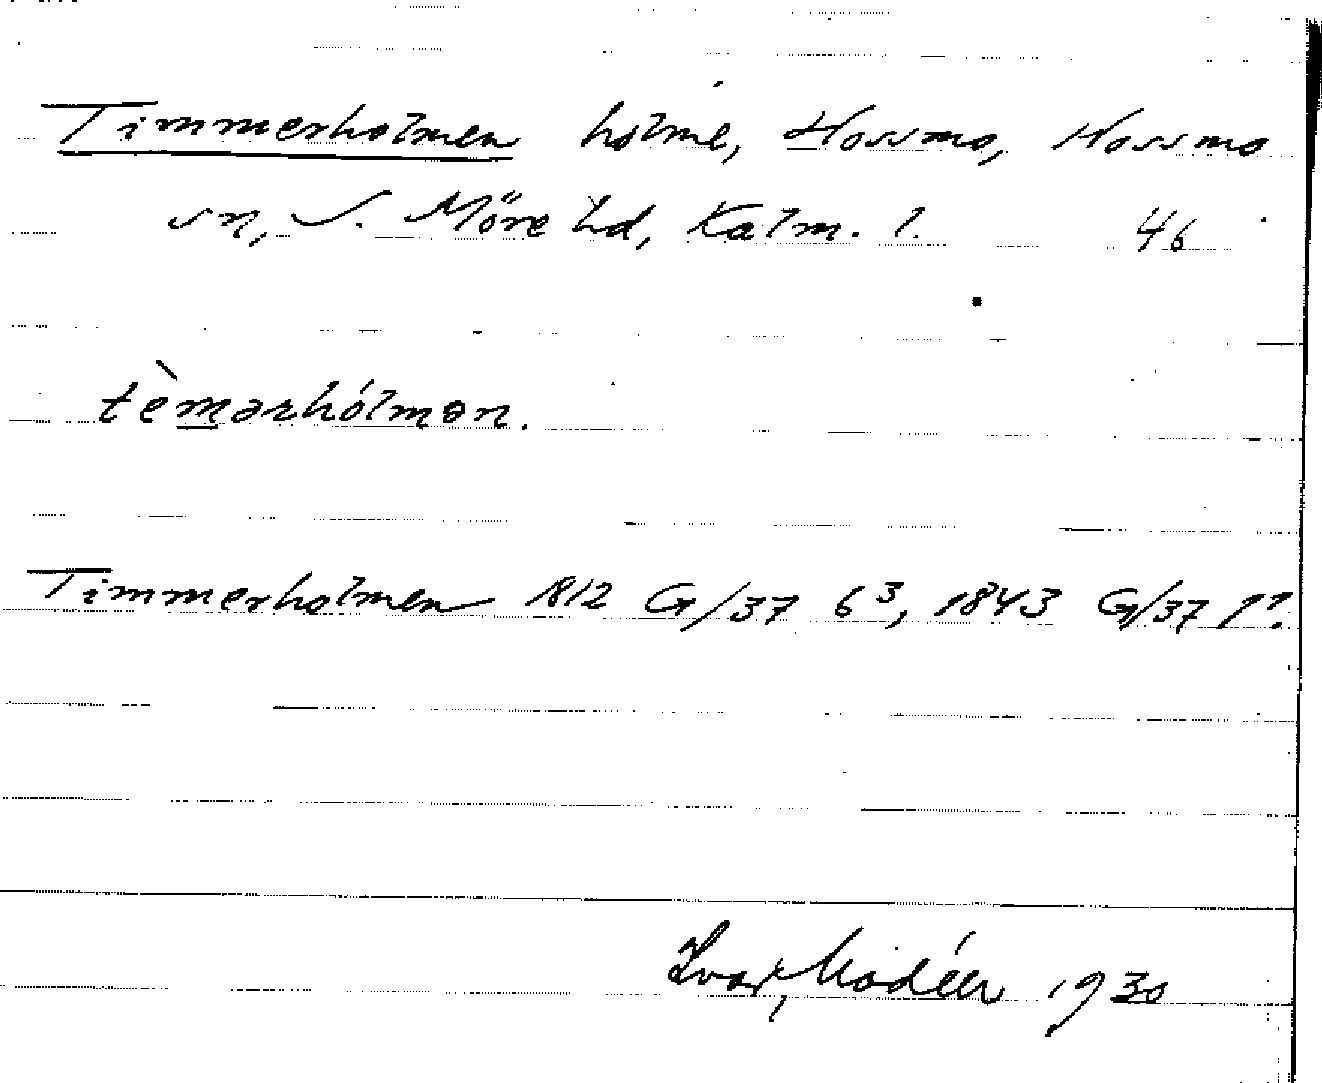 Timmerholmen holme, Hossmo, Hossmo
sn, S. Möre hd, Kalm. l. 46
tèmərhólmən.
Timmerholmen 1812 G/37 6³, 1843 G/37 1?.
Ivar Modéer 1930